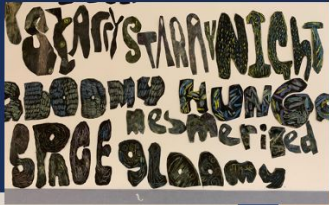 STARRY STARRY NIGHT
GLOOMY HUNG
mesmerized
SPACE gloomy